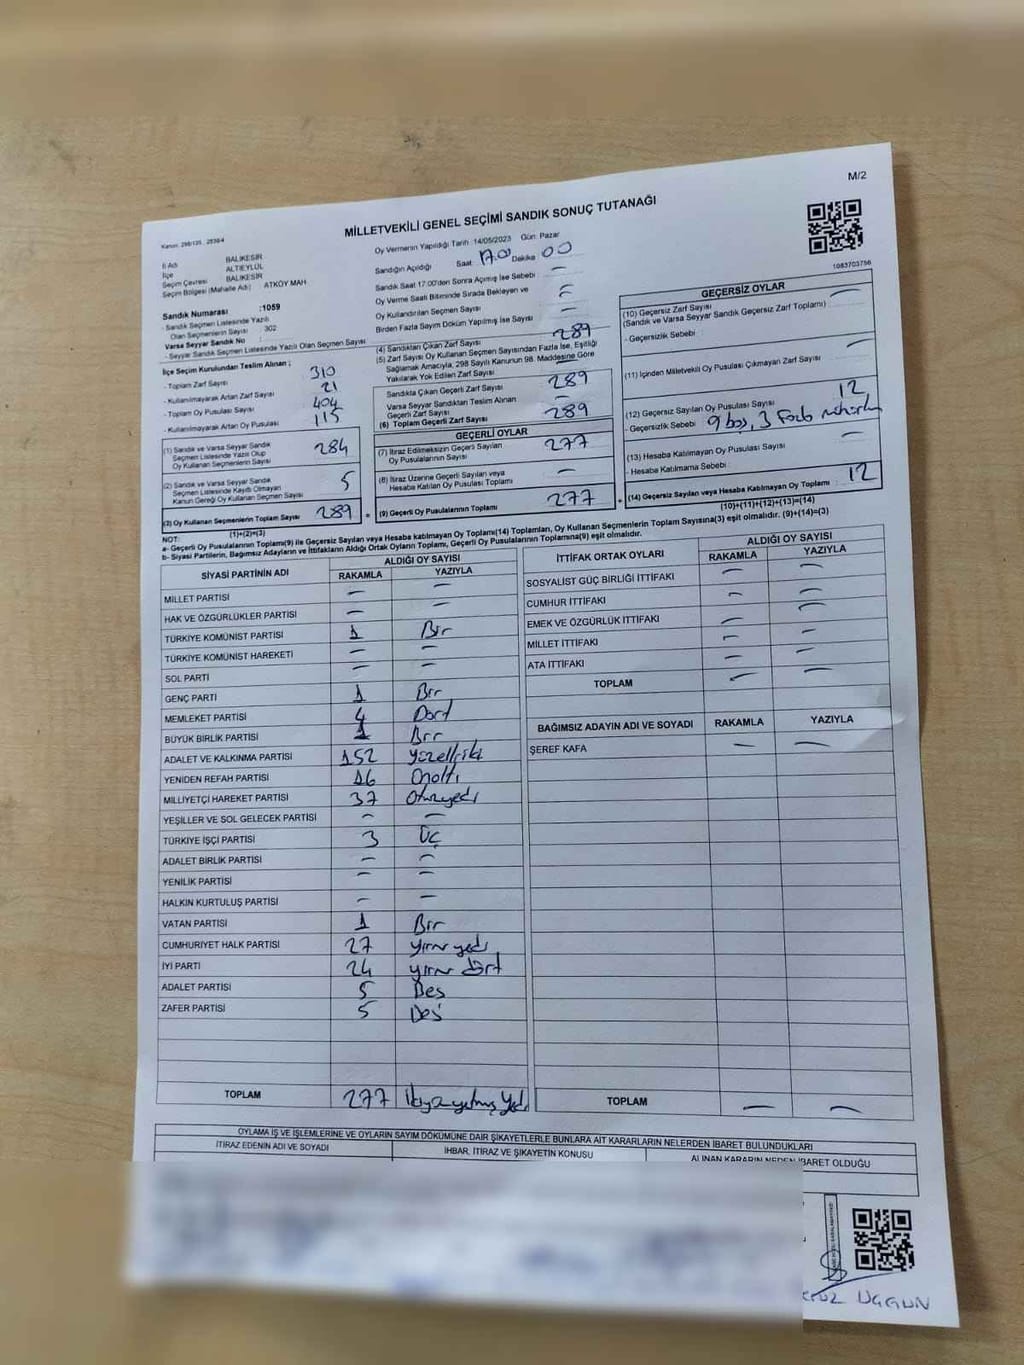 M/2
MİLLETVEKİLİ GENEL SEÇİMİ SANDIK SONUÇ TUTANAĞI
İl Adı BALIKESİR
İlçe ALTIEYLÜL
Seçim Çevresi BALIKESİR
Seçim Bölgesi (Mahalle Adı) ATKÖY MAH
Sandık Numarası :1059
- Sandık Seçmen Listesinde Yazılı
Olan Seçmenlerin Sayısı : 302
Varsa Seyyar Sandık No :
- Seyyar Sandık Seçmen Listesinde Yazılı Olan Seçmen Sayısı
Oy Vermenin Yapıldığı Tarih :14/05/2023 Gün: Pazar
Sandığın Açıldığı Saat 17.00 Dakika 00
Sandık Saat 17:00'den Sonra Açımış İse Sebebi : —
Oy Verme Saati Bitiminde Sırada Bekleyen ve
Oy Kullandırılan Seçmen Sayısı —
Birden Fazla Sayım Döküm Yapılmış İse Sayısı —
1083703756
İlçe Seçim Kurulundan Teslim Alınan ;
- Toplam Zarf Sayısı 310
- Kullanılmayarak Artan Zarf Sayısı 21
- Toplam Oy Pusulası Sayısı 404
- Kullanılmayarak Artan Oy Pusulası 115
(1) Sandık ve Varsa Seyyar Sandık
Seçmen Listesinde Yazılı Olup
Oy Kullanan Seçmenlerin Sayısı 284
(2) Sandık ve Varsa Seyyar Sandık
Seçmen Listesinde Kayıtlı Olmayan
Kanun Gereği Oy Kullanan Seçmen Sayısı 5
(3) Oy Kullanan Seçmenlerin Toplam Sayısı 289
(1)+(2)=(3)
(4) Sandıktan Çıkan Zarf Sayısı 289
(5) Zarf Sayısı Oy Kullanan Seçmen Sayısından Fazla İse, Eşitliği
Sağlamak Amacıyla, 298 Sayılı Kanunun 98. Maddesine Göre
Yakılarak Yok Edilen Zarf Sayısı —
Sandıkta Çıkan Geçerli Zarf Sayısı 289
Varsa Seyyar Sandıktan Teslim Alınan
Geçerli Zarf Sayısı —
(6) Toplam Geçerli Zarf Sayısı 289
GEÇERLİ OYLAR
(7) İtiraz Edilmeksizin Geçerli Sayılan
Oy Pusulalarının Sayısı 277
(8) İtiraz Üzerine Geçerli Sayılan veya
Hesaba Katılan Oy Pusulası Toplamı —
(9) Geçerli Oy Pusulalarının Toplamı 277
GEÇERSİZ OYLAR
(10) Geçersiz Zarf Sayısı —
(Sandık ve Varsa Seyyar Sandık Geçersiz Zarf Toplamı) :
- Geçersizlik Sebebi :
(11) İçinden Milletvekili Oy Pusulası Çıkmayan Zarf Sayısı —
(12) Geçersiz Sayılan Oy Pusulası Sayısı 12
- Geçersizlik Sebebi : 9 boş, 3 Fazla mühürlü
(13) Hesaba Katılmayan Oy Pusulası Sayısı —
- Hesaba Katılmama Sebebi :
(14) Geçersiz Sayılan veya Hesaba Katılmayan Oy Toplamı : 12
(10)+(11)+(12)+(13)=(14)
NOT:
a- Geçerli Oy Pusulalarının Toplamı(9) ile Geçersiz Sayılan veya Hesaba katılmayan Oy Toplamı(14) Toplamları, Oy Kullanan Seçmenlerin Toplam Sayısına(3) eşit olmalıdır. (9)+(14)=(3)
b- Siyasi Partilerin, Bağımsız Adayların ve İttifakların Aldığı Ortak Oyların Toplamı, Geçerli Oy Pusulalarının Toplamına(9) eşit olmalıdır.
SİYASİ PARTİNİN ADI ALDIĞI OY SAYISI
RAKAMLA YAZIYLA
MİLLET PARTİSİ — —
HAK VE ÖZGÜRLÜKLER PARTİSİ — —
TÜRKİYE KOMÜNİST PARTİSİ 1 Bir
TÜRKİYE KOMÜNİST HAREKETİ — —
SOL PARTİ — —
GENÇ PARTİ 1 Bir
MEMLEKET PARTİSİ 4 Dört
BÜYÜK BİRLİK PARTİSİ 1 Bir
ADALET VE KALKINMA PARTİSİ 152 yüzelliiki
YENİDEN REFAH PARTİSİ 16 Onaltı
MİLLİYETÇİ HAREKET PARTİSİ 37 Otuzyedi
YEŞİLLER VE SOL GELECEK PARTİSİ — —
TÜRKİYE İŞÇİ PARTİSİ 3 Üç
ADALET BİRLİK PARTİSİ — —
YENİLİK PARTİSİ — —
HALKIN KURTULUŞ PARTİSİ — —
VATAN PARTİSİ 1 Bir
CUMHURİYET HALK PARTİSİ 27 yirmi yedi
İYİ PARTİ 24 yirmi dört
ADALET PARTİSİ 5 Beş
ZAFER PARTİSİ 5 Beş
TOPLAM 277 ikiyüzyetmiş yedi
İTTİFAK ORTAK OYLARI ALDIĞI OY SAYISI
RAKAMLA YAZIYLA
SOSYALİST GÜÇ BİRLİĞİ İTTİFAKI — —
CUMHUR İTTİFAKI — —
EMEK VE ÖZGÜRLÜK İTTİFAKI — —
MİLLET İTTİFAKI — —
ATA İTTİFAKI — —
TOPLAM — —
BAĞIMSIZ ADAYIN ADI VE SOYADI RAKAMLA YAZIYLA
ŞEREF KAFA — —
TOPLAM — —
OYLAMA İŞ VE İŞLEMLERİNE VE OYLARIN SAYIM DÖKÜMÜNE DAİR ŞİKAYETLERLE BUNLARA AİT KARARLARIN NELERDEN İBARET BULUNDUKLARI
İTİRAZ EDENİN ADI VE SOYADI İHBAR, İTİRAZ VE ŞİKAYETİN KONUSU ALINAN KARARIN NEDEN İBARET OLDUĞU
UYGUN